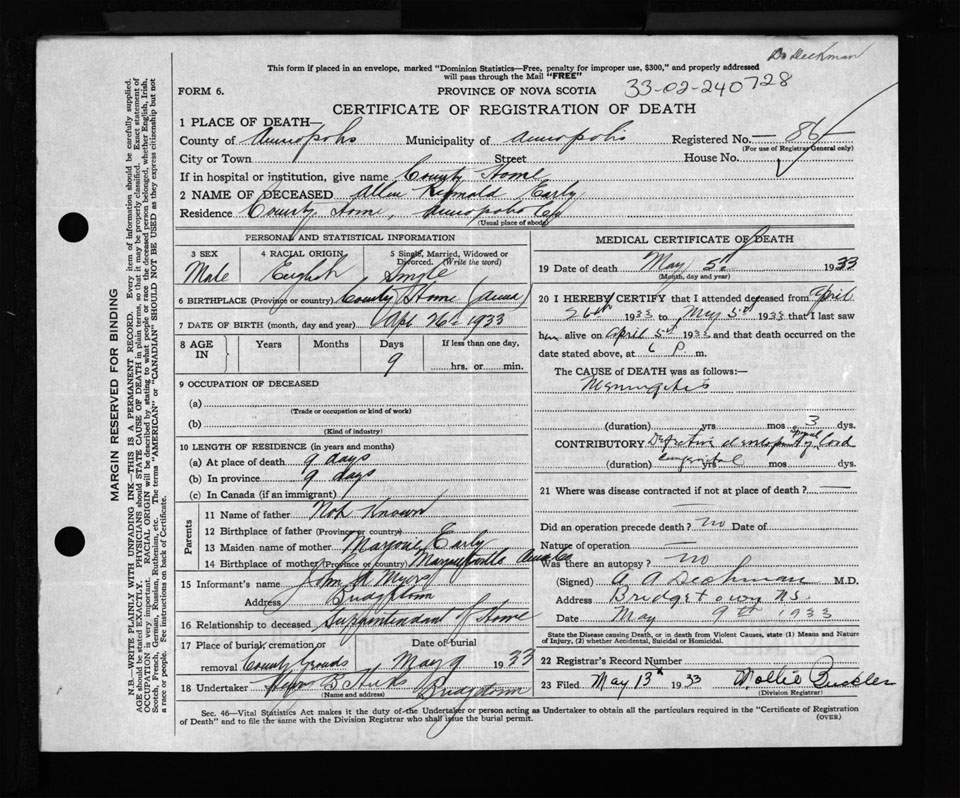 Dr Deckman
This form if placed in an envelope, marked "Dominion Statistics—Free, penalty for improper use, $300," and properly addressed
will pass through the Mail "FREE"
FORM 6.
PROVINCE OF NOVA SCOTIA
33-02-240728
CERTIFICATE OF REGISTRATION OF DEATH
1 PLACE OF DEATH—
County of Annapolis Municipality of Annapolis Registered No. —86—
(For use of Registrar General only)
City or Town Street House No.
If in hospital or institution, give name County Home
2 NAME OF DECEASED Allen Reginald Early
Residence County Home, Annapolis Co
(Usual place of abode)
PERSONAL AND STATISTICAL INFORMATION
3 SEX 4 RACIAL ORIGIN 5 Single, Married, Widowed or
Divorced. (Write the word)
Male English Single
6 BIRTHPLACE (Province or country) County Home (Anna)
7 DATE OF BIRTH (month, day and year) Apl 26th 1933
8 AGE IN Years Months Days If less than one day,
9 hrs. or min.
9 OCCUPATION OF DECEASED
(a)
(Trade or occupation or kind of work)
(b)
(Kind of industry)
10 LENGTH OF RESIDENCE (in years and months)
(a) At place of death 9 days
(b) In province 9 days
(c) In Canada (if an immigrant)
Parents
11 Name of father Not Known
12 Birthplace of father (Province or country)
13 Maiden name of mother Marjorie Early
14 Birthplace of mother (Province or country)
15 Informant's name John H Myers
Address Bridgetown
16 Relationship to deceased Superintendant of Home
17 Place of burial, cremation or Date of burial
removal County Grounds May 9 1933
18 Undertaker Bridgetown
(Name and address)
MEDICAL CERTIFICATE OF DEATH
19 Date of death May 5th 1933
(Month, day and year)
20 I HEREBY CERTIFY that I attended deceased from April
26th 1933 to May 5th 1933 that I last saw
him alive on April 5th 1933 and that death occurred on the
date stated above, at 6 P m.
The CAUSE of DEATH was as follows:—
Meningitis
(duration) yrs mos 3 dys.
CONTRIBUTORY Defective development of spinal Cord
(duration) congenital yrs mos dys.
21 Where was disease contracted if not at place of death? —
Did an operation precede death? no Date of
Nature of operation —
Was there an autopsy? no
(Signed) A A Deckman M.D.
Address Bridgetown N.S.
Date May 9th 1933
State the Disease causing Death, or in death from Violent Causes, state (1) Means and Nature
of Injury, (2) whether Accidental, Suicidal or Homicidal.
22 Registrar's Record Number
23 Filed May 13th 1933 Mollie
(Division Registrar)
Sec. 46—Vital Statistics Act makes it the duty of the Undertaker or person acting as Undertaker to obtain all the particulars required in the "Certificate of Registration
of Death" and to file the same with the Division Registrar who shall issue the burial permit.
(OVER)
MARGIN RESERVED FOR BINDING
N.B.—WRITE PLAINLY WITH UNFADING INK—THIS IS A PERMANENT RECORD. Every item of information should be carefully supplied.
AGE should be stated EXACTLY. PHYSICIANS should STATE CAUSE OF DEATH in plain terms, so that it may be properly classified. Exact statement of
OCCUPATION is very important. RACIAL ORIGIN will be described by stating to what people or race the deceased person belonged, whether English, Irish,
Scotch, French, German, Russian, Ruthenian, etc. The terms "AMERICAN" or "CANADIAN" SHOULD NOT BE USED as they express citizenship but not
a race or people. See instructions on back of Certificate.